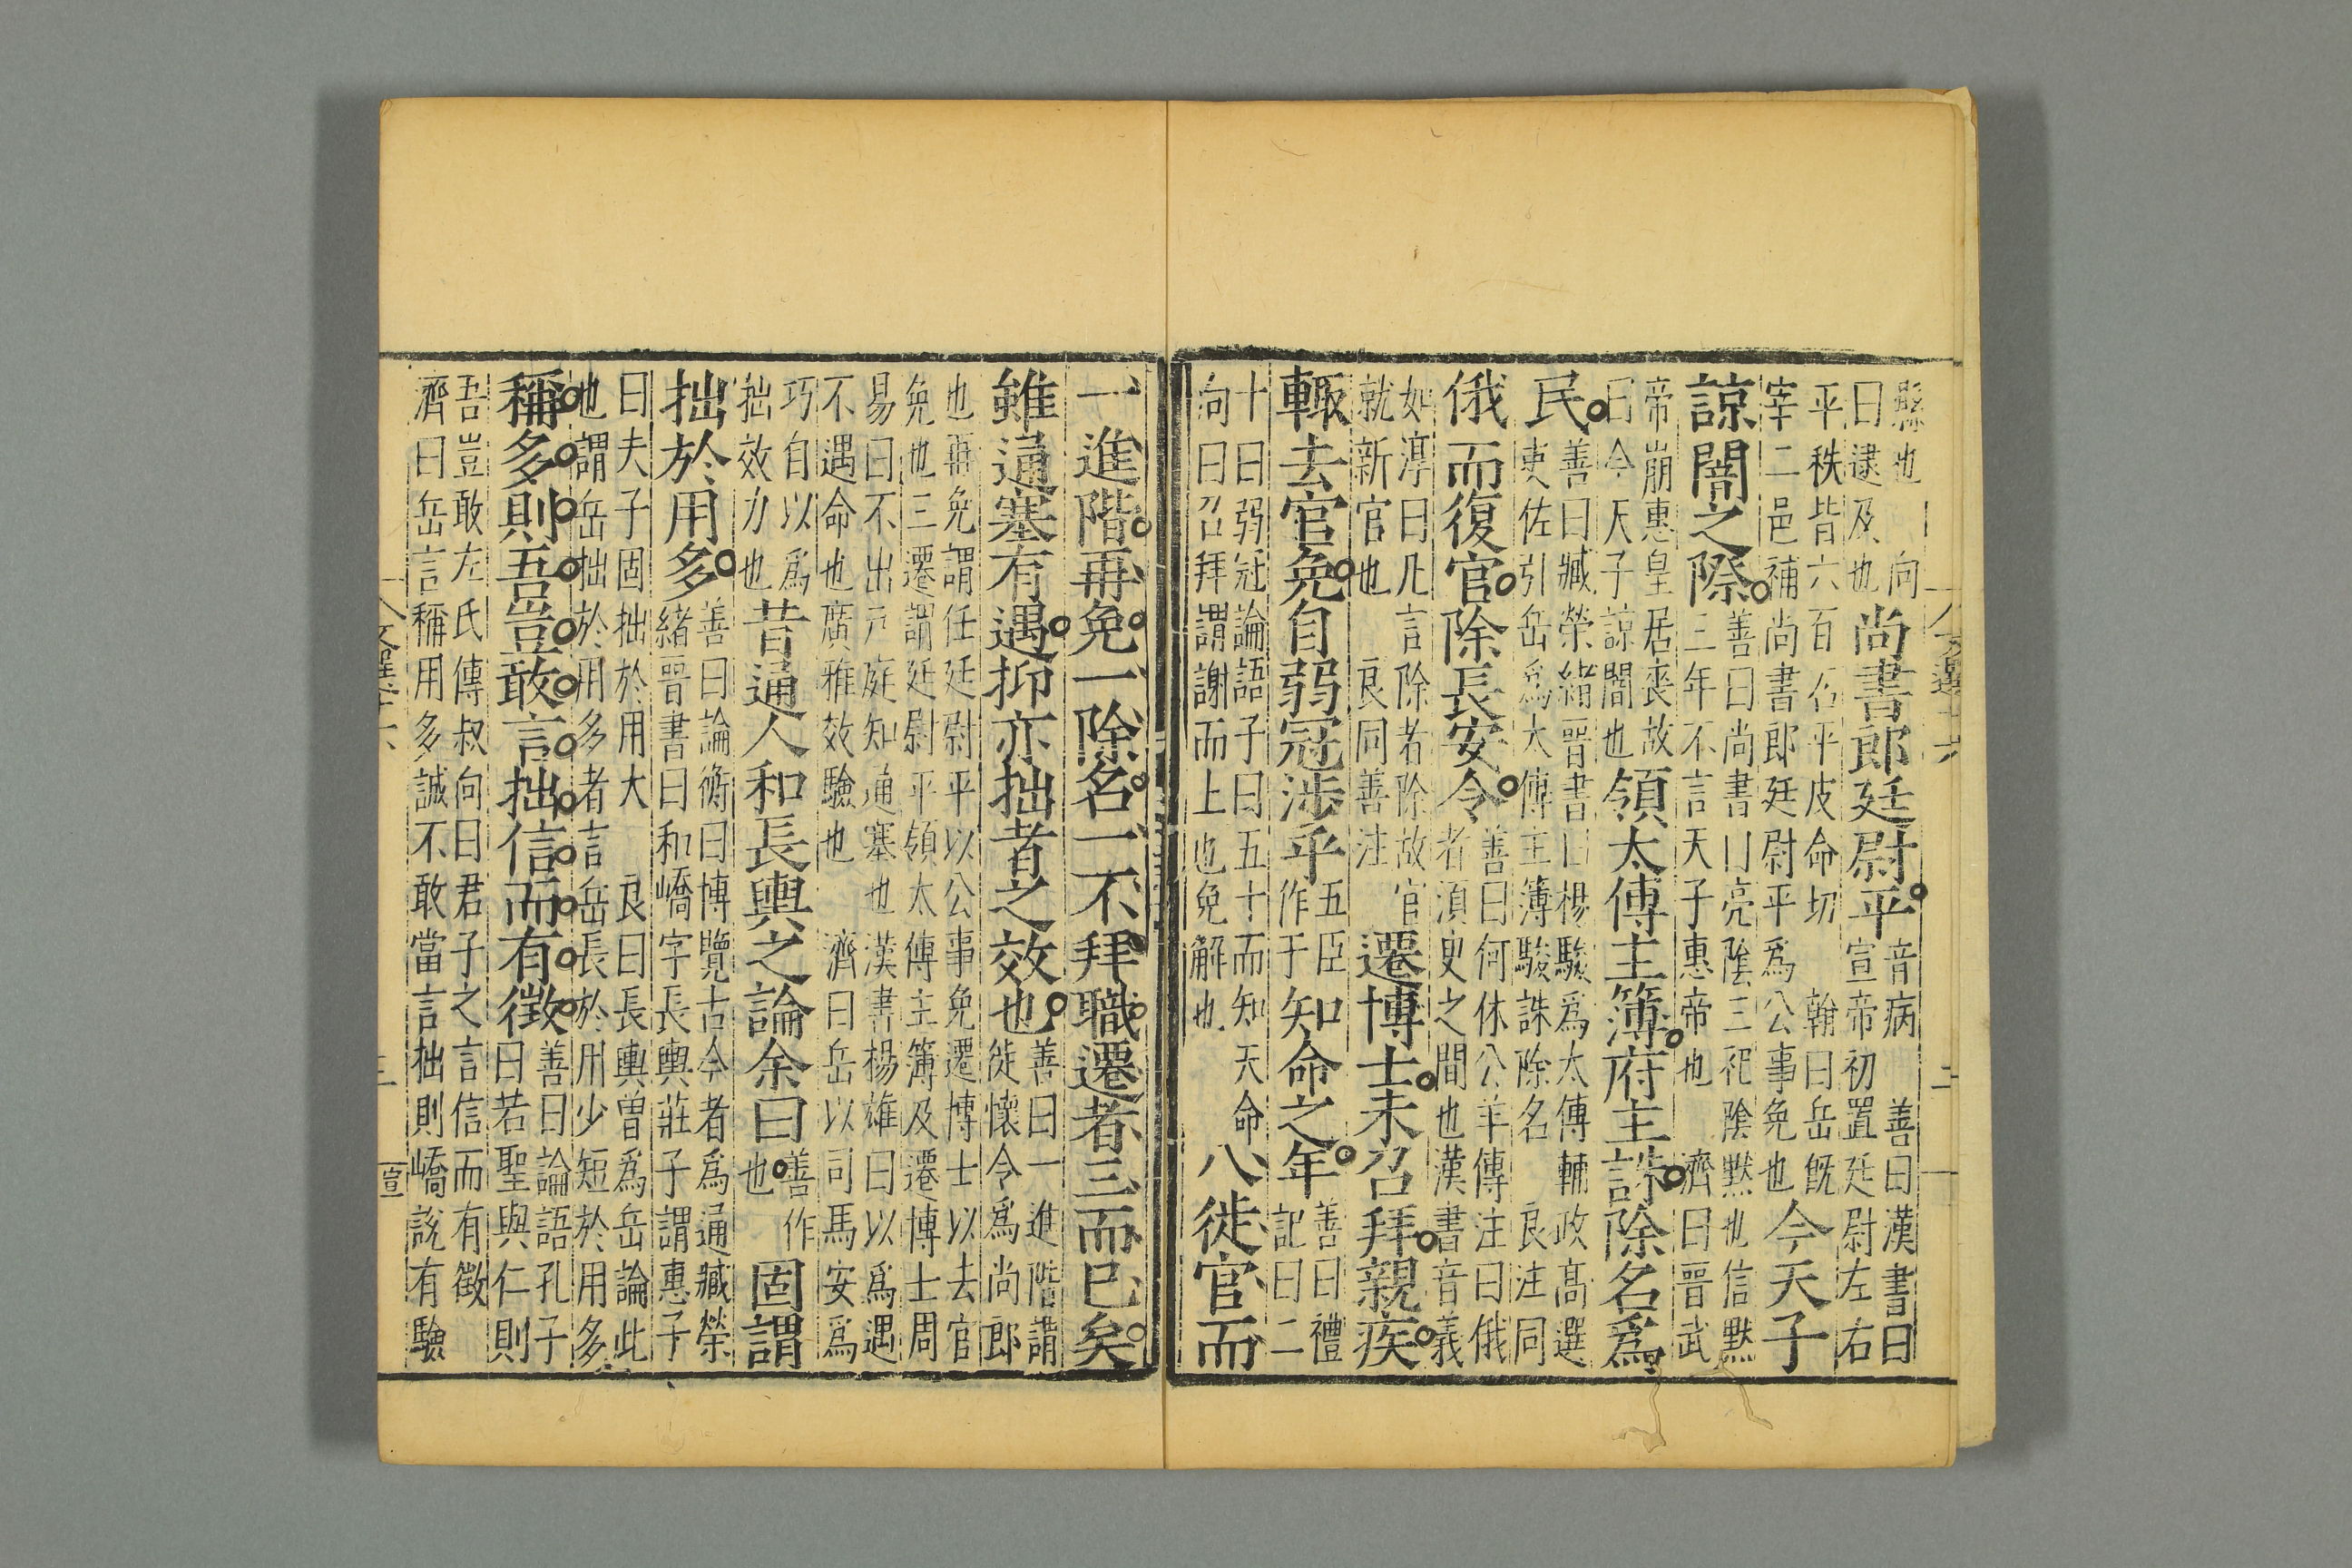 縣也　向
曰逮及也
尚書郎廷尉平
音病　善曰漢書曰
宣帝初置廷尉左右
平秩皆六百石平皮命切　翰曰岳旣
宰二邑補尚書郎廷尉平爲公事免也
今天子
諒闇之際
善曰尚書曰亮陰三祀陰黙也信黙
三年不言天子惠帝也　濟曰晋武
帝崩惠皇居喪故
曰今天子諒闇也
領太傅主簿府主誅除名爲
民
善曰臧榮緒晋書曰楊駿爲太傅輔政髙選
吏佐引岳爲太傅主簿駿誅除名　良注同
俄而復官除長安令
善曰何休公羊傳注曰俄
者須臾之間也漢書音義
如淳曰凡言除者除故官
就新官也　良同善注
遷博士未召拜親疾
輙去官免自弱冠涉乎
五臣
作于
知命之年
善曰禮
記曰二
十曰弱冠論語子曰五十而知天命
向曰召拜謂謝而上也免解也
八徙官而
一進階再免一除名一不拜職遷者三而已矣
雖通塞有遇抑亦拙者之效也
善曰一進階謂
徙懷令爲尚郎
也再免謂任廷尉平以公事免遷博士以去官
免也三遷謂廷尉平領太傅主簿及遷博士周
易曰不出戸庭知通塞也漢書楊雄曰以爲遇
不遇命也廣雅效驗也　濟曰岳以司馬安爲
巧自以爲
拙效力也
昔通人和長輿之論余曰
善作
也
固謂
拙於用多
善曰論衡曰博覽古今者爲通臧榮
緒晋書曰和嶠字長輿莊子謂惠子
曰夫子固拙於用大　良曰長輿曾爲岳論此
也謂岳拙於用多者言岳長於用少短於用多
稱多則吾豈敢言拙信而有徵
善曰論語孔子
曰若聖與仁則
吾豈敢左氏傳叔向曰君子之言信而有徵
濟曰岳言稱用多誠不敢當言拙則嶠說有驗